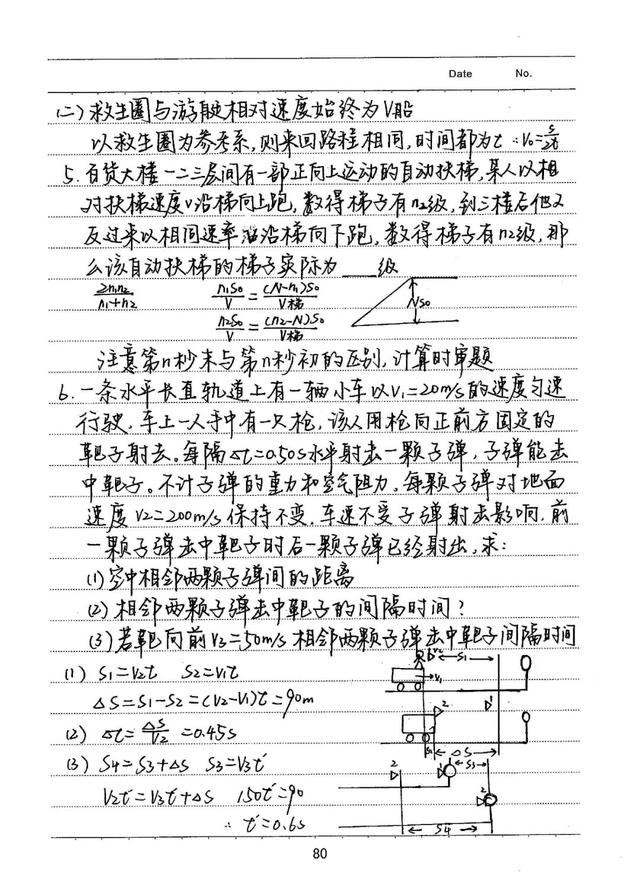 Date No.
(二) 救生圈与游艇相对速度始终为V船
以救生圈为参考系,则来回路程相同,时间都为t ∴V₀=s/2t
5. 百货大楼一二三层间有一部正向上运动的自动扶梯,某人以相
对扶梯速度V沿梯向上跑,数得梯子有n₁级,到三楼后他又
反过来以相同速率沿梯向下跑,数得梯子有n₂级,那
么该自动扶梯的梯子实际为____级
2n₁n₂/n₁+n₂ n₁S₀/V=(N-n₁)S₀/V梯 NS₀
n₂S₀/V=(n₂-N)S₀/V梯
注意第n秒末与第n秒初的区别,计算时审题
6. 一条水平长直轨道上有一辆小车以V₁=20m/s的速度匀速
行驶,车上一人手中有一只枪,该人用枪向正前方固定的
靶子射击。每隔Δt=0.50s水平射击一颗子弹,子弹能击
中靶子。不计子弹的重力和空气阻力,每颗子弹对地面
速度V2=200m/s保持不变,车速不受子弹射击影响,前
一颗子弹击中靶子时后一颗子弹已经射出,求:
(1) 空中相邻两颗子弹间的距离
(2) 相邻两颗子弹击中靶子的间隔时间?
(3) 若靶向前V₃=50m/s 相邻两颗子弹击中靶子间隔时间
(1) S₁=V₂t S₂=V₁t V₂ S₁ V₁
ΔS=S₁-S₂=(V₂-V₁)t=90m 2 1
(2) Δt=ΔS/V₂=0.45s S₂ ΔS
(3) S₄=S₃+ΔS S₃=V₃t' 2 1 S₃
V₂t'=V₃t'+ΔS 150t'=90 2
∴ t'=0.6s S₄
80